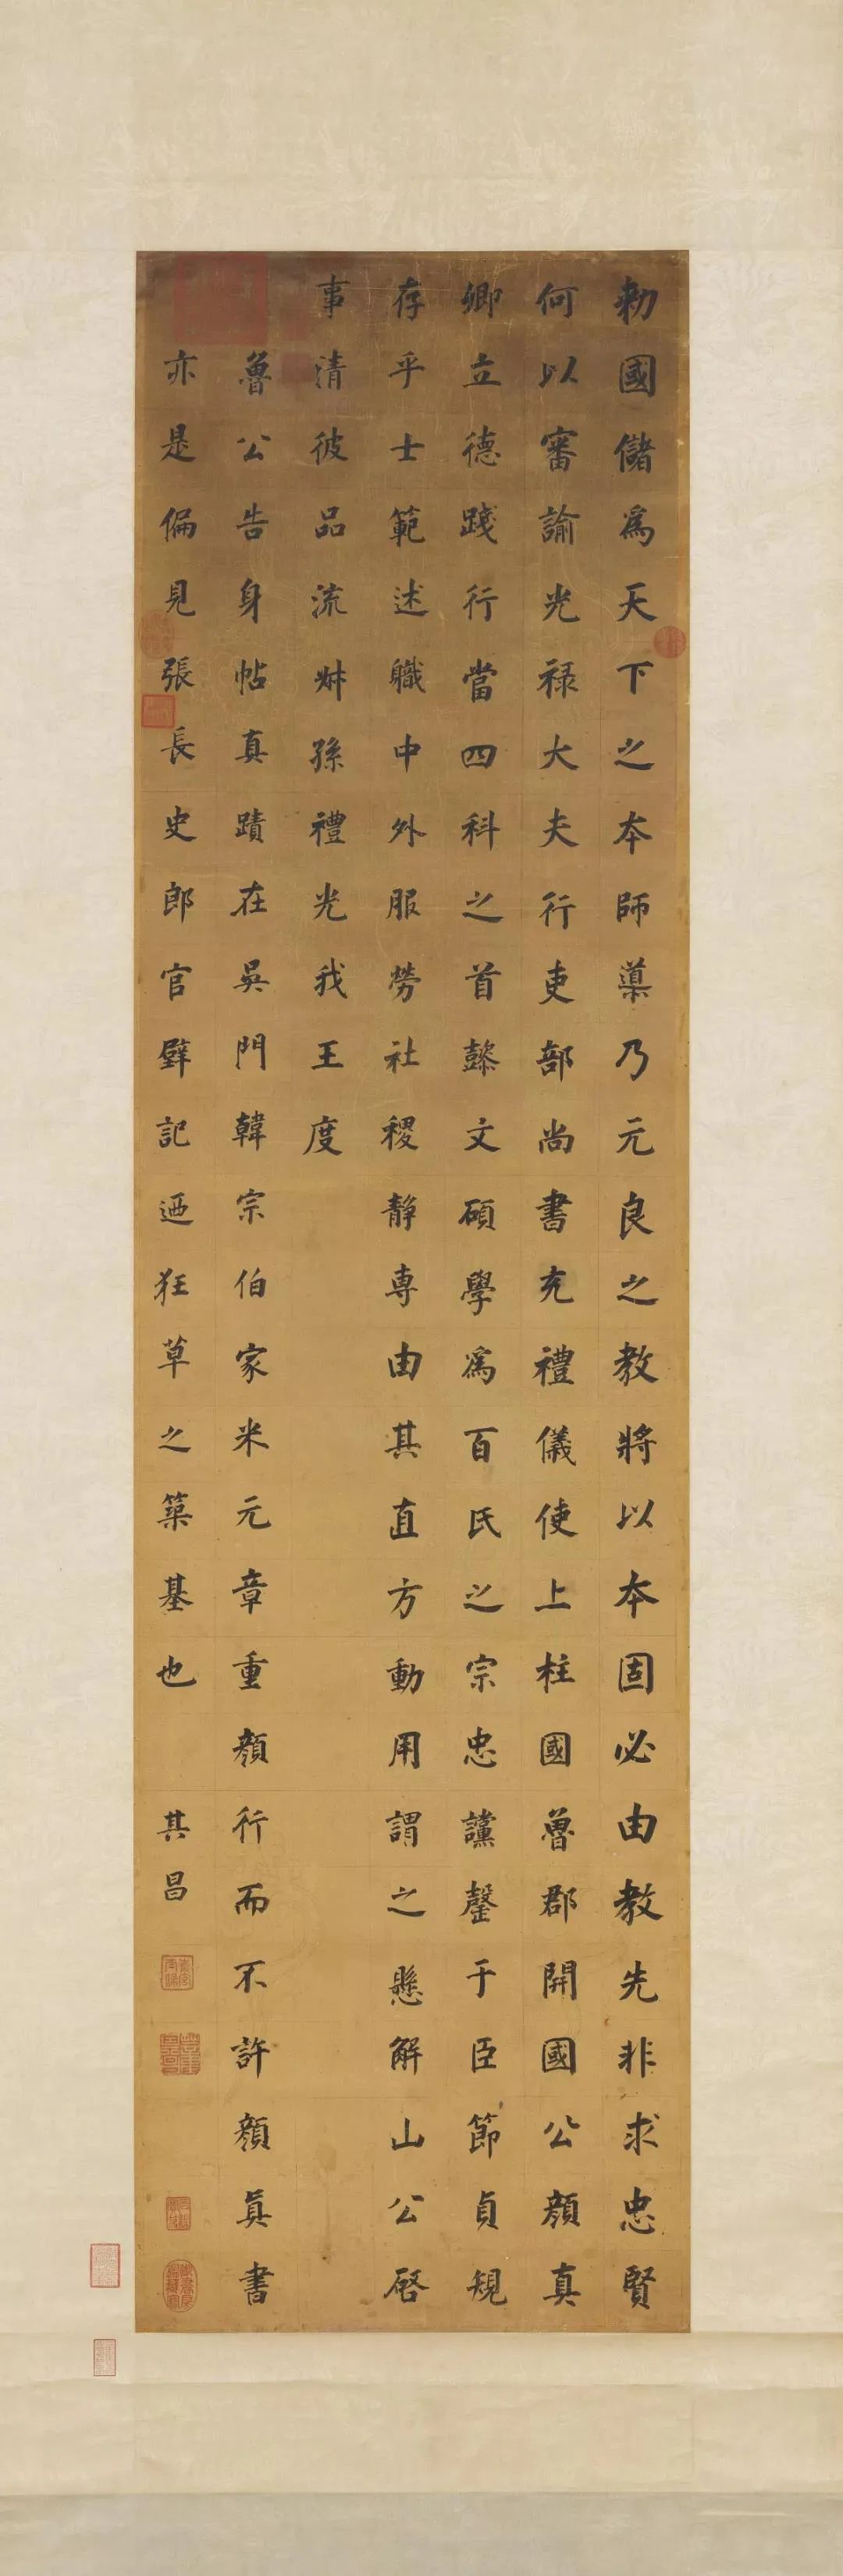 勅國儲為天下之本師導乃元良之教將以本固必由教先非求忠賢
何以審諭光祿大夫行吏部尚書充禮儀使上柱國魯郡開國公顏真
卿立德踐行當四科之首懿文碩學為百氏之宗忠讜罄于臣節貞規
存乎士範述職中外服勞社稷靜專由其直方動用謂之懸解山公啓
事清彼品流叔孫禮光我王度
魯公告身帖真蹟在吳門韓宗伯家米元章重顏行而不許顏真書
亦是偏見張長史郎官壁記迺狂草之築基也 其昌